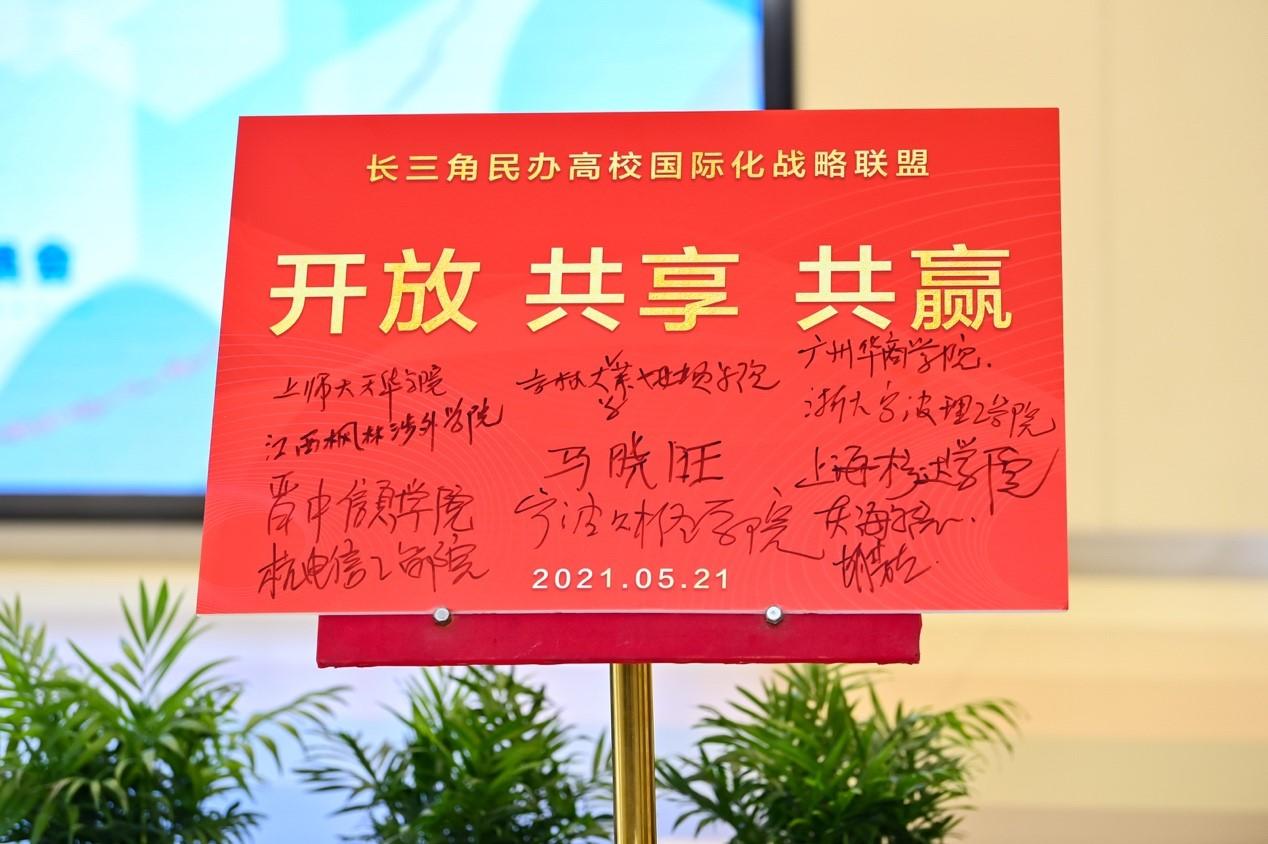 长三角民办高校国际化战略联盟
开放 共享 共赢
上师大天华学院
江西枫林涉外学院
晋中信息学院
杭电信工学院
马晓旺
宁波财经学院
广州华商学院.
浙大宁波理工学院
上海杉达学院
2021.05.21